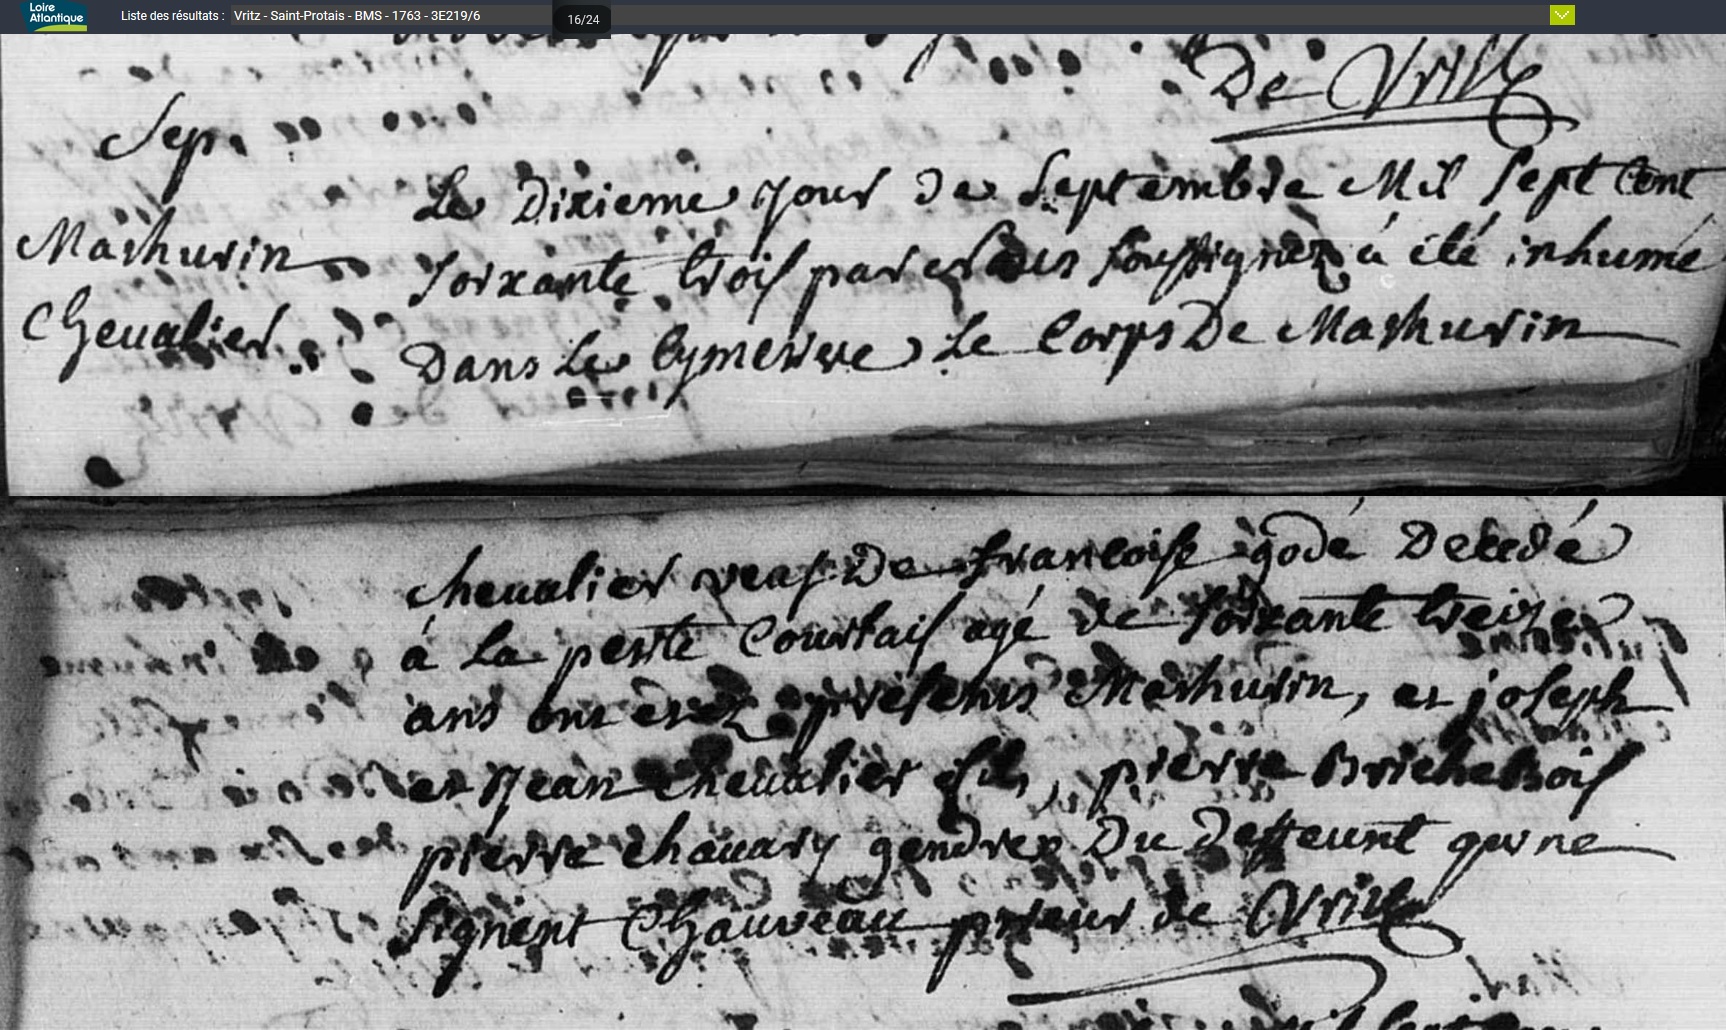 Loire
Atlantique
Liste des résultats : Vritz - Saint-Protais - BMS - 1763 - 3E219/6
16/24
De Vritz
Sep.
Mathurin
Chevalier
Le Dixieme jour De Septembre Mil Sept Cent
Soixante trois par soussignez à été inhumé
Dans Le Cymetiere Le Corps De Mathurin
chevalier veuf De francoise godé Decedé
à La petite Courtais agé de soixante treize
ans ont etez présens Mathurin, et joseph
et jean chevalier fils, pierre Brichebois
pierre chauvry gendres Du deffeunt qui ne
signent Chauveau prieur de Vritz